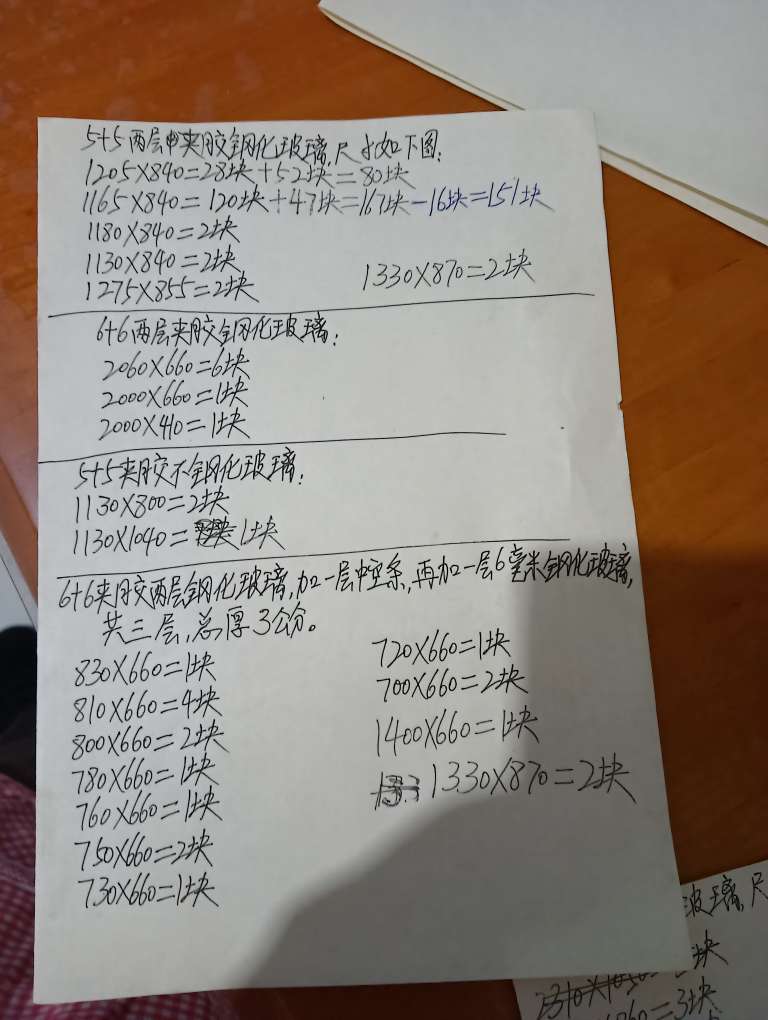 5+5两层夹胶钢化玻璃,尺寸如下图:
1205×840=28块+52块=80块
1165×840=120块+47块=167块-16块=151块
1180×840=2块
1130×840=2块
1275×855=2块
1330×870=2块
6+6两层夹胶钢化玻璃:
2060×660=6块
2000×660=1块
2000×410=1块
5+5夹胶不钢化玻璃:
1130×800=2块
1130×1040=1块
6+6夹胶两层钢化玻璃,加一层中空条,再加一层6毫米钢化玻璃,
共三层,总厚3公分。
830×660=1块
810×660=4块
800×660=2块
780×660=1块
760×660=1块
750×660=2块
730×660=1块
720×660=1块
700×660=2块
1400×660=1块
1330×870=2块
玻璃,尺
块
=3块